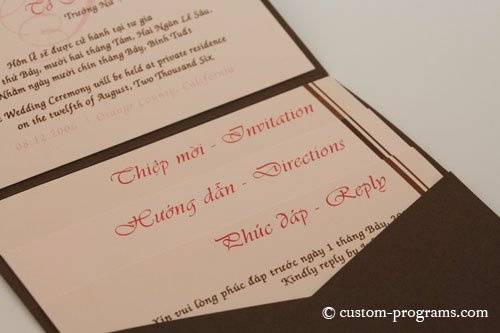 Trưởng Nữ
Hôn lễ sẽ được cử hành tại tư gia
thứ Bảy, mười hai tháng Tám, Hai Ngàn Lẻ Sáu.
Nhằm ngày mười chín tháng Bảy, Bính Tuất
Wedding Ceremony will be held at private residence
on the twelfth of August, Two Thousand Six
08.12.2006 | Orange County, California
Thiệp mời - Invitation
Hướng dẫn - Directions
Phúc đáp - Reply
Xin vui lòng phúc đáp trước ngày 1 tháng Bảy, 20
Kindly reply by
© custom-programs.com